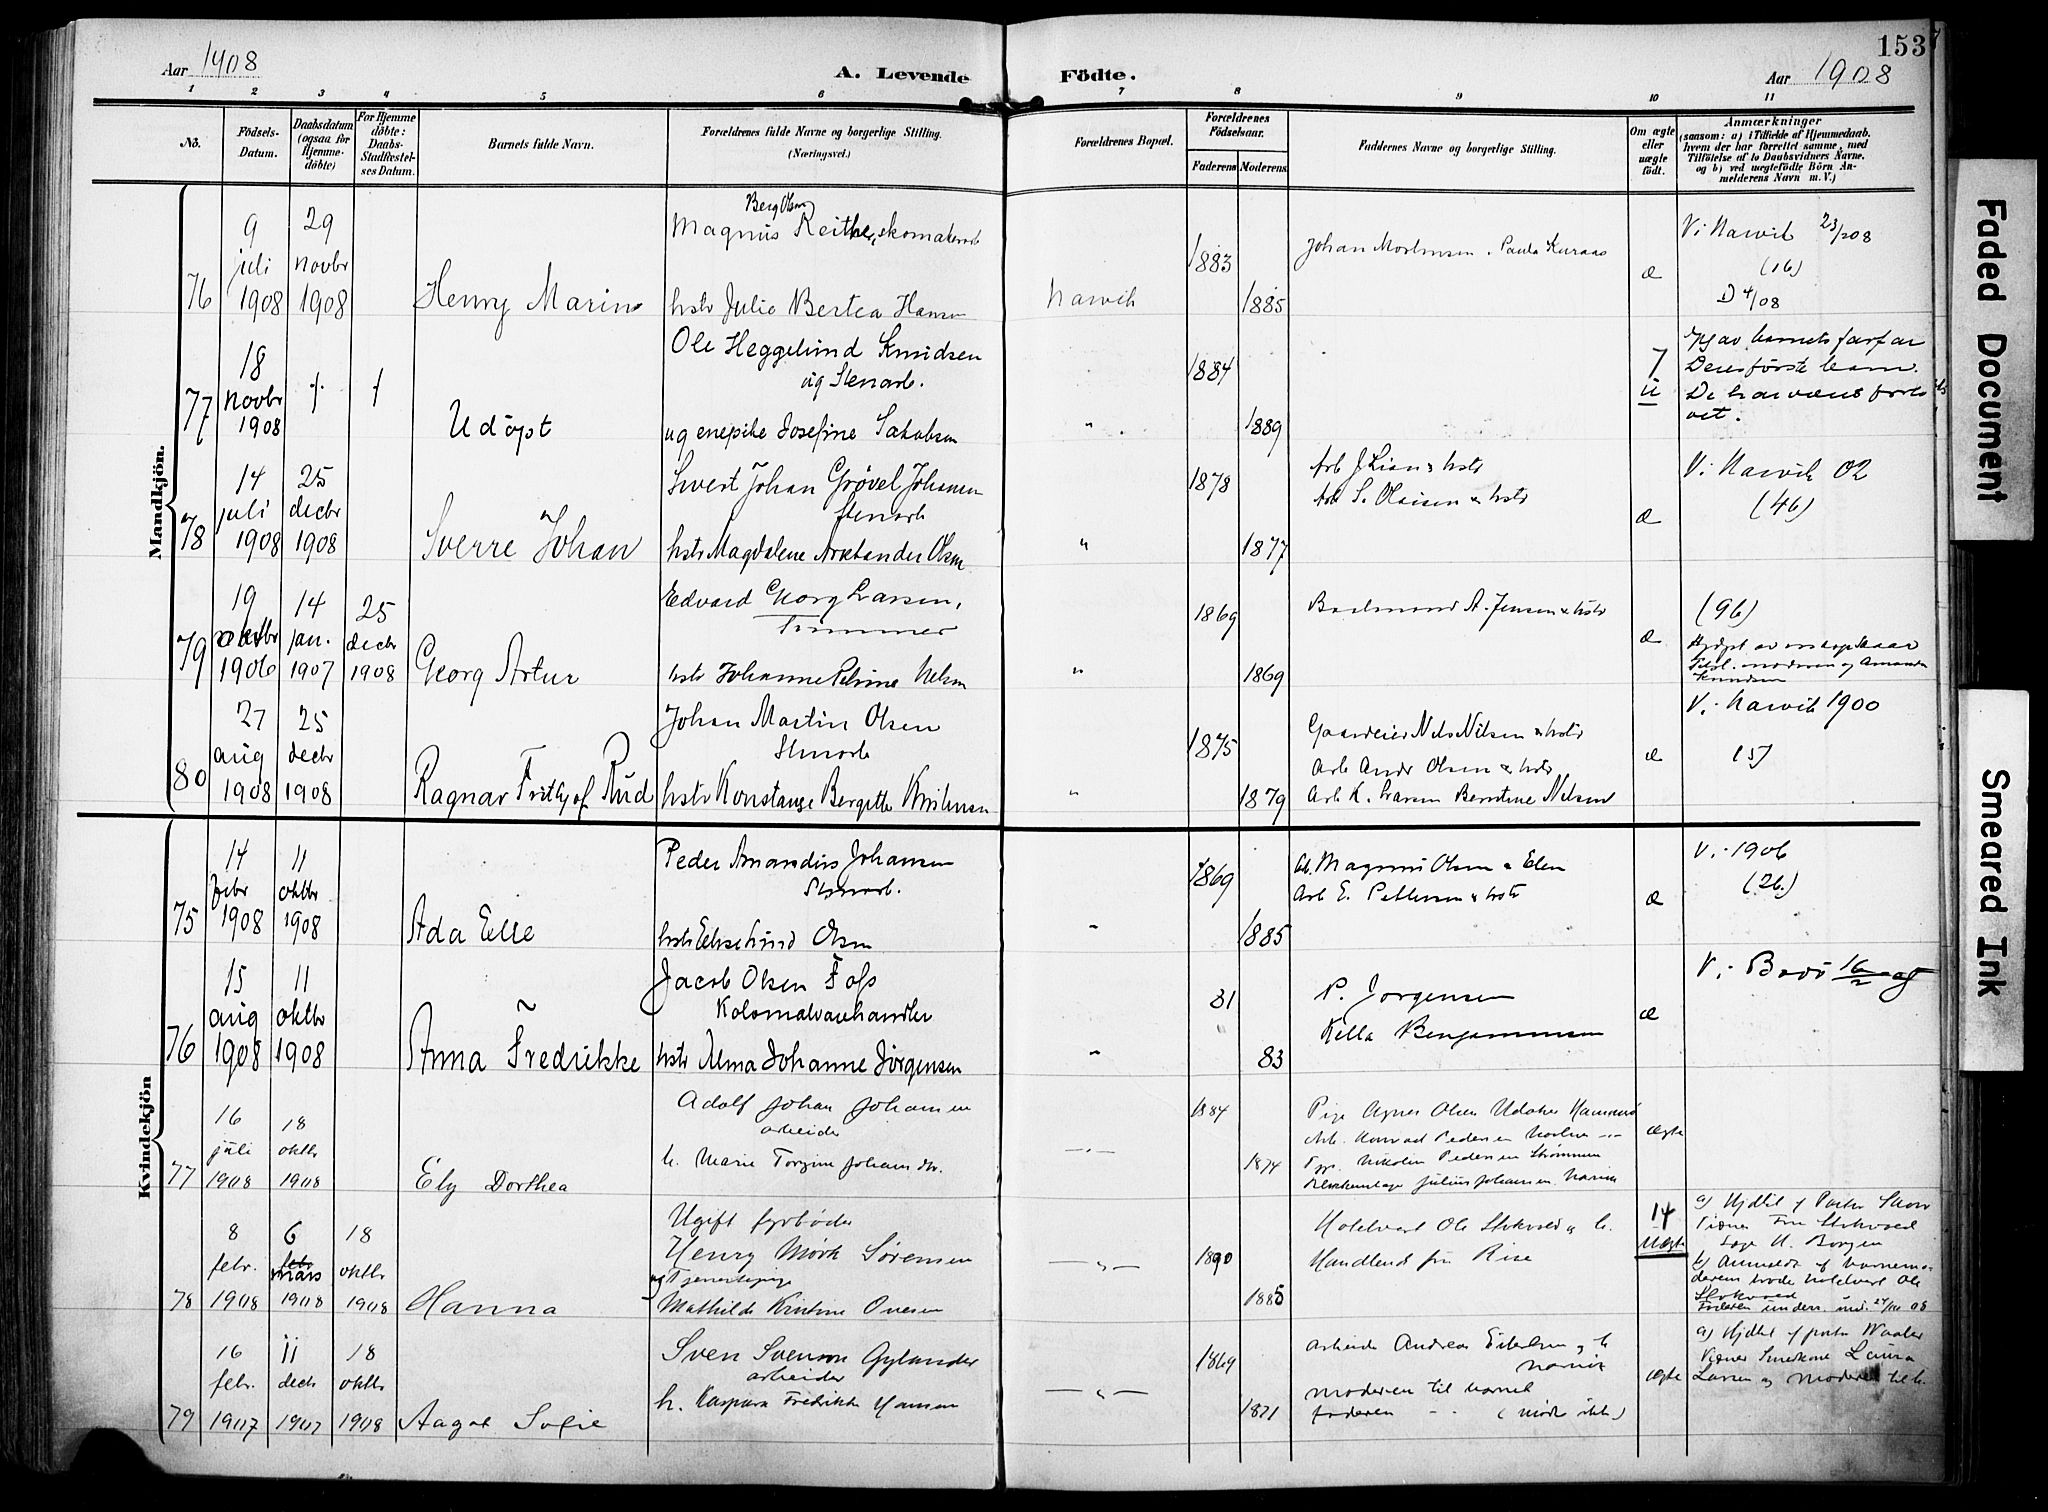 153
Aar 1908
A. Levende Födte.
Aar 1908
1 2 3 4 5 6 7 8 9 10 11
No.
Födsels-
Datum.
Daabsdatum
(ogsaa for
Hjemme-
døbte)
For Hjemme
döbte:
Daabs-
Stadfæstel-
ses Datum.
Barnets fulde Navn.
Forældrenes fulde Navne og borgerlige Stilling.
(Næringsvei.)
Forældrenes Bopæl.
Forældrenes
Födselsaar.
Faderens
Moderens
Faddernes Navne og borgerlige Stilling.
Om ægte
eller
uægte
födt.
Anmærkninger
(saasom: a) i Tilfælde af Hjemmedaab.
hvem der har forrettet samme, med
Tilföielse af to Daabsvidners Navne.
og b) ved uægtefödte Börn An-
melderens Navn m. V.)
Mandkjön.
76
9
juli
1908
29
novbr
1908
Henry Marino
Berg Olsen
Magnus Reithe, skomakerarb
hstr Julie Bertea Hansen
Narvik
1883
1885
Johan Mortensen. Paula Kuraas
æ
V: Narvik 23/2 08
(16)
D 4/08
77
18
novbr
1908
Udöpt
Ole Heggelund Knudsen
ug Stenarb.
ug enepike Josefine Jakobsen
"
1884
1889
7
u
av barnets farfar
Deres første barn.
De har været forlo
vet.
78
14
juli
1908
25
decbr
1908
Sverre Johan
Sivert Johan Grøvel Johansen
Stenarb
hstr Magdalene Arxtander Olsen
"
1878
1877
Arb J. Lian & hstr
Arb S. Olaisen & hstr
æ
V: Narvik 02
(46)
79
19
oktbr
1906
14
jan.
1907
25
decbr
1908
Georg Artur
Edvard Georg Larsen,
Tømmer
hstr Johanne Petrine Nelsen
"
1869
1869
A. Jensen & hstr
æ
(96)
moderen og Amanda
Knudsen
80
27
aug
1908
25
decbr
1908
Ragnar Frithjof Rud
Johan Martin Olsen
Stenarb
hstr Konstanse Bergitte Kristensen
"
1875
1879
Gaardeier Nels Nilsen & hstr
Arb Andr Olsen & hstr
Arb K. Larsen Berntine Nelsen
æ
V: Narvik 1900
(5)
Kvindekjön
75
14
febr
1908
11
oktbr
1908
Ada Elle
Peder Amandus Johansen
Stenarb.
hstr Elise Lund Olsen
"
1869
1885
Arb. Magnus Olsen & Elen
Arb E. Pettersen & hstr
æ
V: 1906
(26.)
76
15
aug
1908
11
oktbr
1908
Anna Fredrikke
Jacob Olsen Foss
Kolonialvarehandler
hstr Alma Johanne Jørgensen
"
81
83
P. Jørgensen
Kella Benjaminsen
æ
V: Bodö 16/2 07
77
16
juli
1908
18
oktbr
1908
Ely Dorthea
Adolf Johan Johansen
arbeider
h. Marie Torgine Johansdtr.
"
1884
1874
Pige Agnes Olsen Udaker Hammerø
Arb. Konrad Pedersen
Nikolai Pedersen Strømmen
Julius Johansen, Narvik
ægte
78
8
febr.
1908
6
febr
mars
1908
18
oktbr
1908
Hanna
Ugift fyrbøder
Henry Mörk Sørensen
og Tjenestepige
Mathilde Kristine Ovesen
"
1890
1885
Hotelvert Ole Stokvold og h.
Handlende frn Rise
14
uægte
a) Hjdbt af Pastor
Vidner Fru Stokvold
Søge H. Borgen
b) Anmeldt af barnemo-
derens hotelvert Ole
Stokvold
79
16
febr.
1907
11
decb
1907
18
oktbr
1908
Aagot Sofie
Sven Svenson Gylander
arbeider
h. Kaspara Fredrikke Hansen
"
1869
1871
arbeider Andreas Eilertsen og h
Narvik
Moderen til barnet
faderen - - (møde ikke)
ægte
a) Hjdbt af pastor Waaler
Vidner Smedkone Laura
Larsen og moderen til b.
Faded Document
Smeared Ink